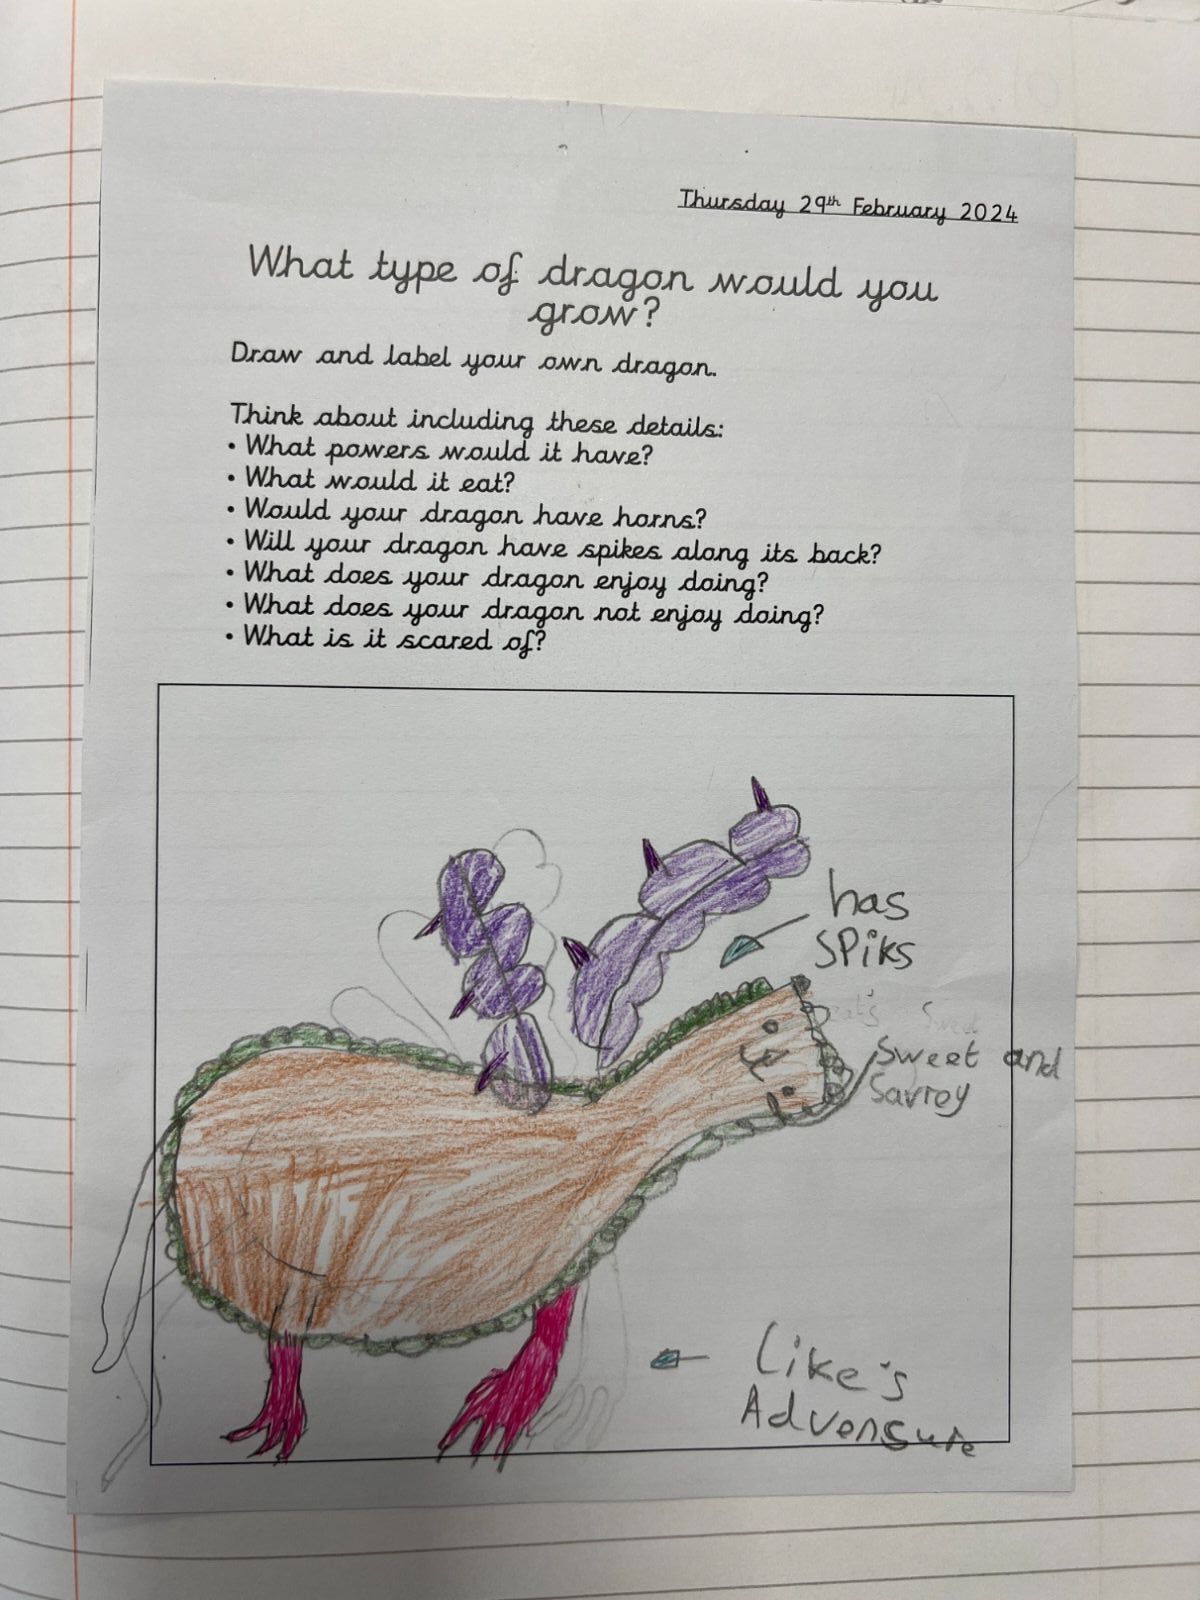 Thursday 29th February 2024
What type of dragon would you
grow?
Draw and label your own dragon.
Think about including these details:
• What powers would it have?
• What would it eat?
• Would your dragon have horns?
• Will your dragon have spikes along its back?
• What does your dragon enjoy doing?
• What does your dragon not enjoy doing?
• What is it scared of?
has
SPiks
eat's Sweet
Sweet and
Savrey
Like's
Advensure